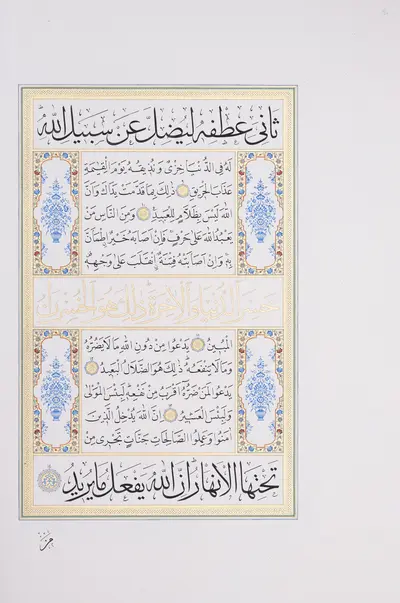 ثَانِيَ عِطْفِهِ لِيُضِلَّ عَنْ سَبِيلِ اللهِ
لَهُ فِي الدُّنْيَا خِزْيٌ وَنُذِيقُهُ يَوْمَ الْقِيٰمَةِ
عَذَابَ الْحَرِيقِ ذٰلِكَ بِمَا قَدَّمَتْ يَدَاكَ وَاَنَّ
اللهَ لَيْسَ بِظَلَّامٍ لِلْعَبِيدِ وَمِنَ النَّاسِ مَنْ
يَعْبُدُ اللهَ عَلٰى حَرْفٍ فَاِنْ اَصَابَهُ خَيْرٌ اطْمَاَنَّ
بِهِ وَاِنْ اَصَابَتْهُ فِتْنَةٌ انْقَلَبَ عَلٰى وَجْهِهِ
خَسِرَ الدُّنْيَا وَالْاٰخِرَةَ ذٰلِكَ هُوَ الْخُسْرَانُ
الْمُبِينُ يَدْعُوا مِنْ دُونِ اللهِ مَا لَا يَضُرُّهُ
وَمَا لَا يَنْفَعُهُ ذٰلِكَ هُوَ الضَّلَالُ الْبَعِيدُ
يَدْعُوا لَمَنْ ضَرُّهُ اَقْرَبُ مِنْ نَفْعِهِ لَبِئْسَ الْمَوْلٰى
وَلَبِئْسَ الْعَشِيرُ اِنَّ اللهَ يُدْخِلُ الَّذِينَ
اٰمَنُوا وَعَمِلُوا الصَّالِحَاتِ جَنَّاتٍ تَجْرِي مِنْ
تَحْتِهَا الْاَنْهَارُ اِنَّ اللهَ يَفْعَلُ مَا يُرِيدُ
مَنْ